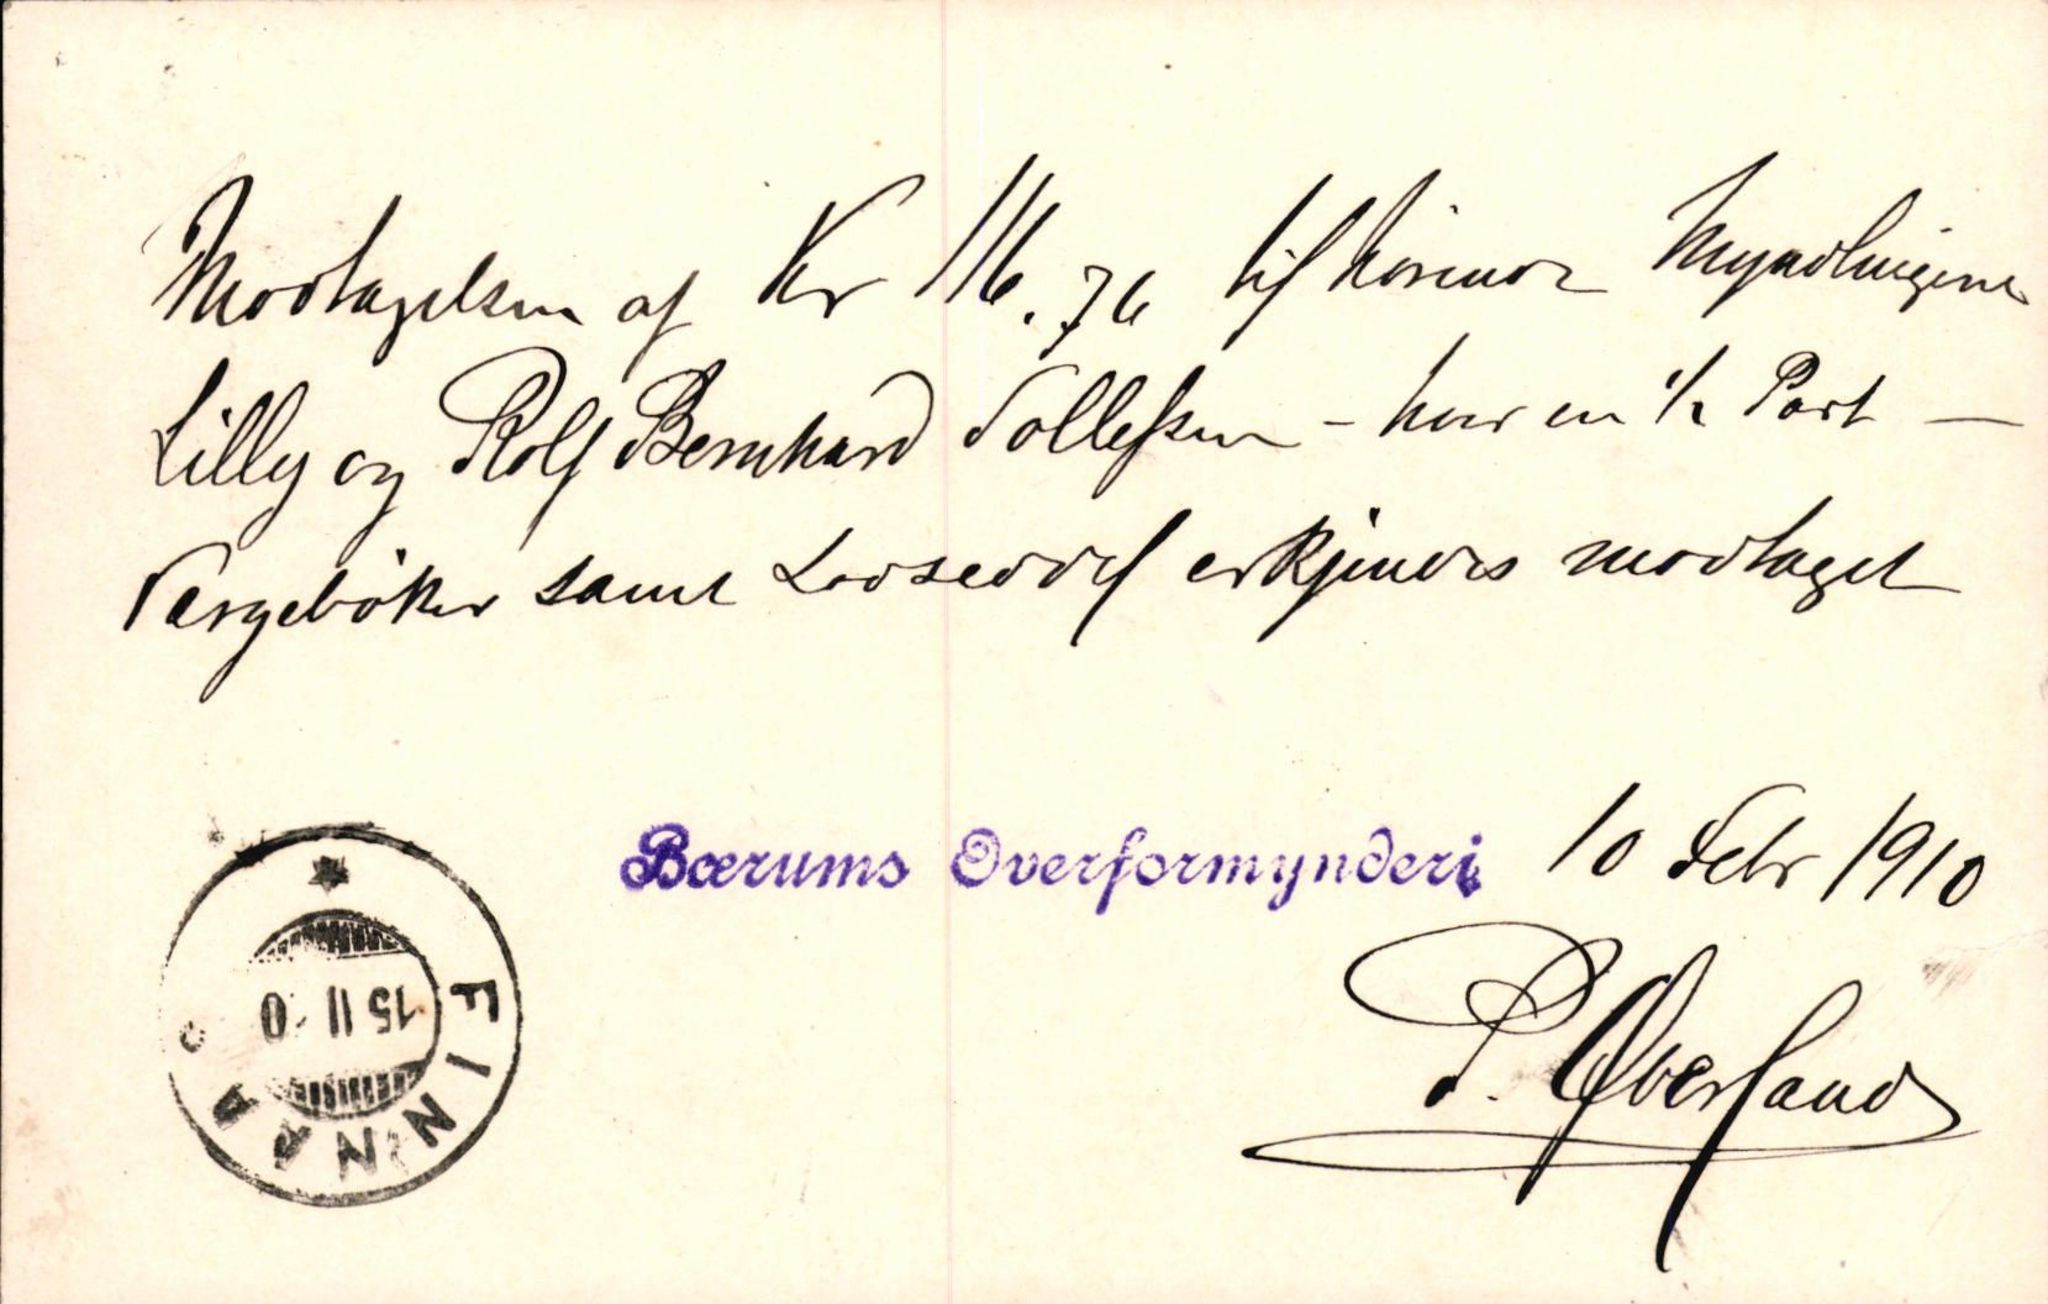 Modtagelsen af Kr 116.76 tilhørende Myndlingene
Lilly og Rolf Bernhard Tollefsen – hver en ½ Part —
Værgebøker samt Lodseddel erkjendes modtaget
Bærums Overformynderi 10 Febr 1910
P. Øverland
FINNAA
15 II 10